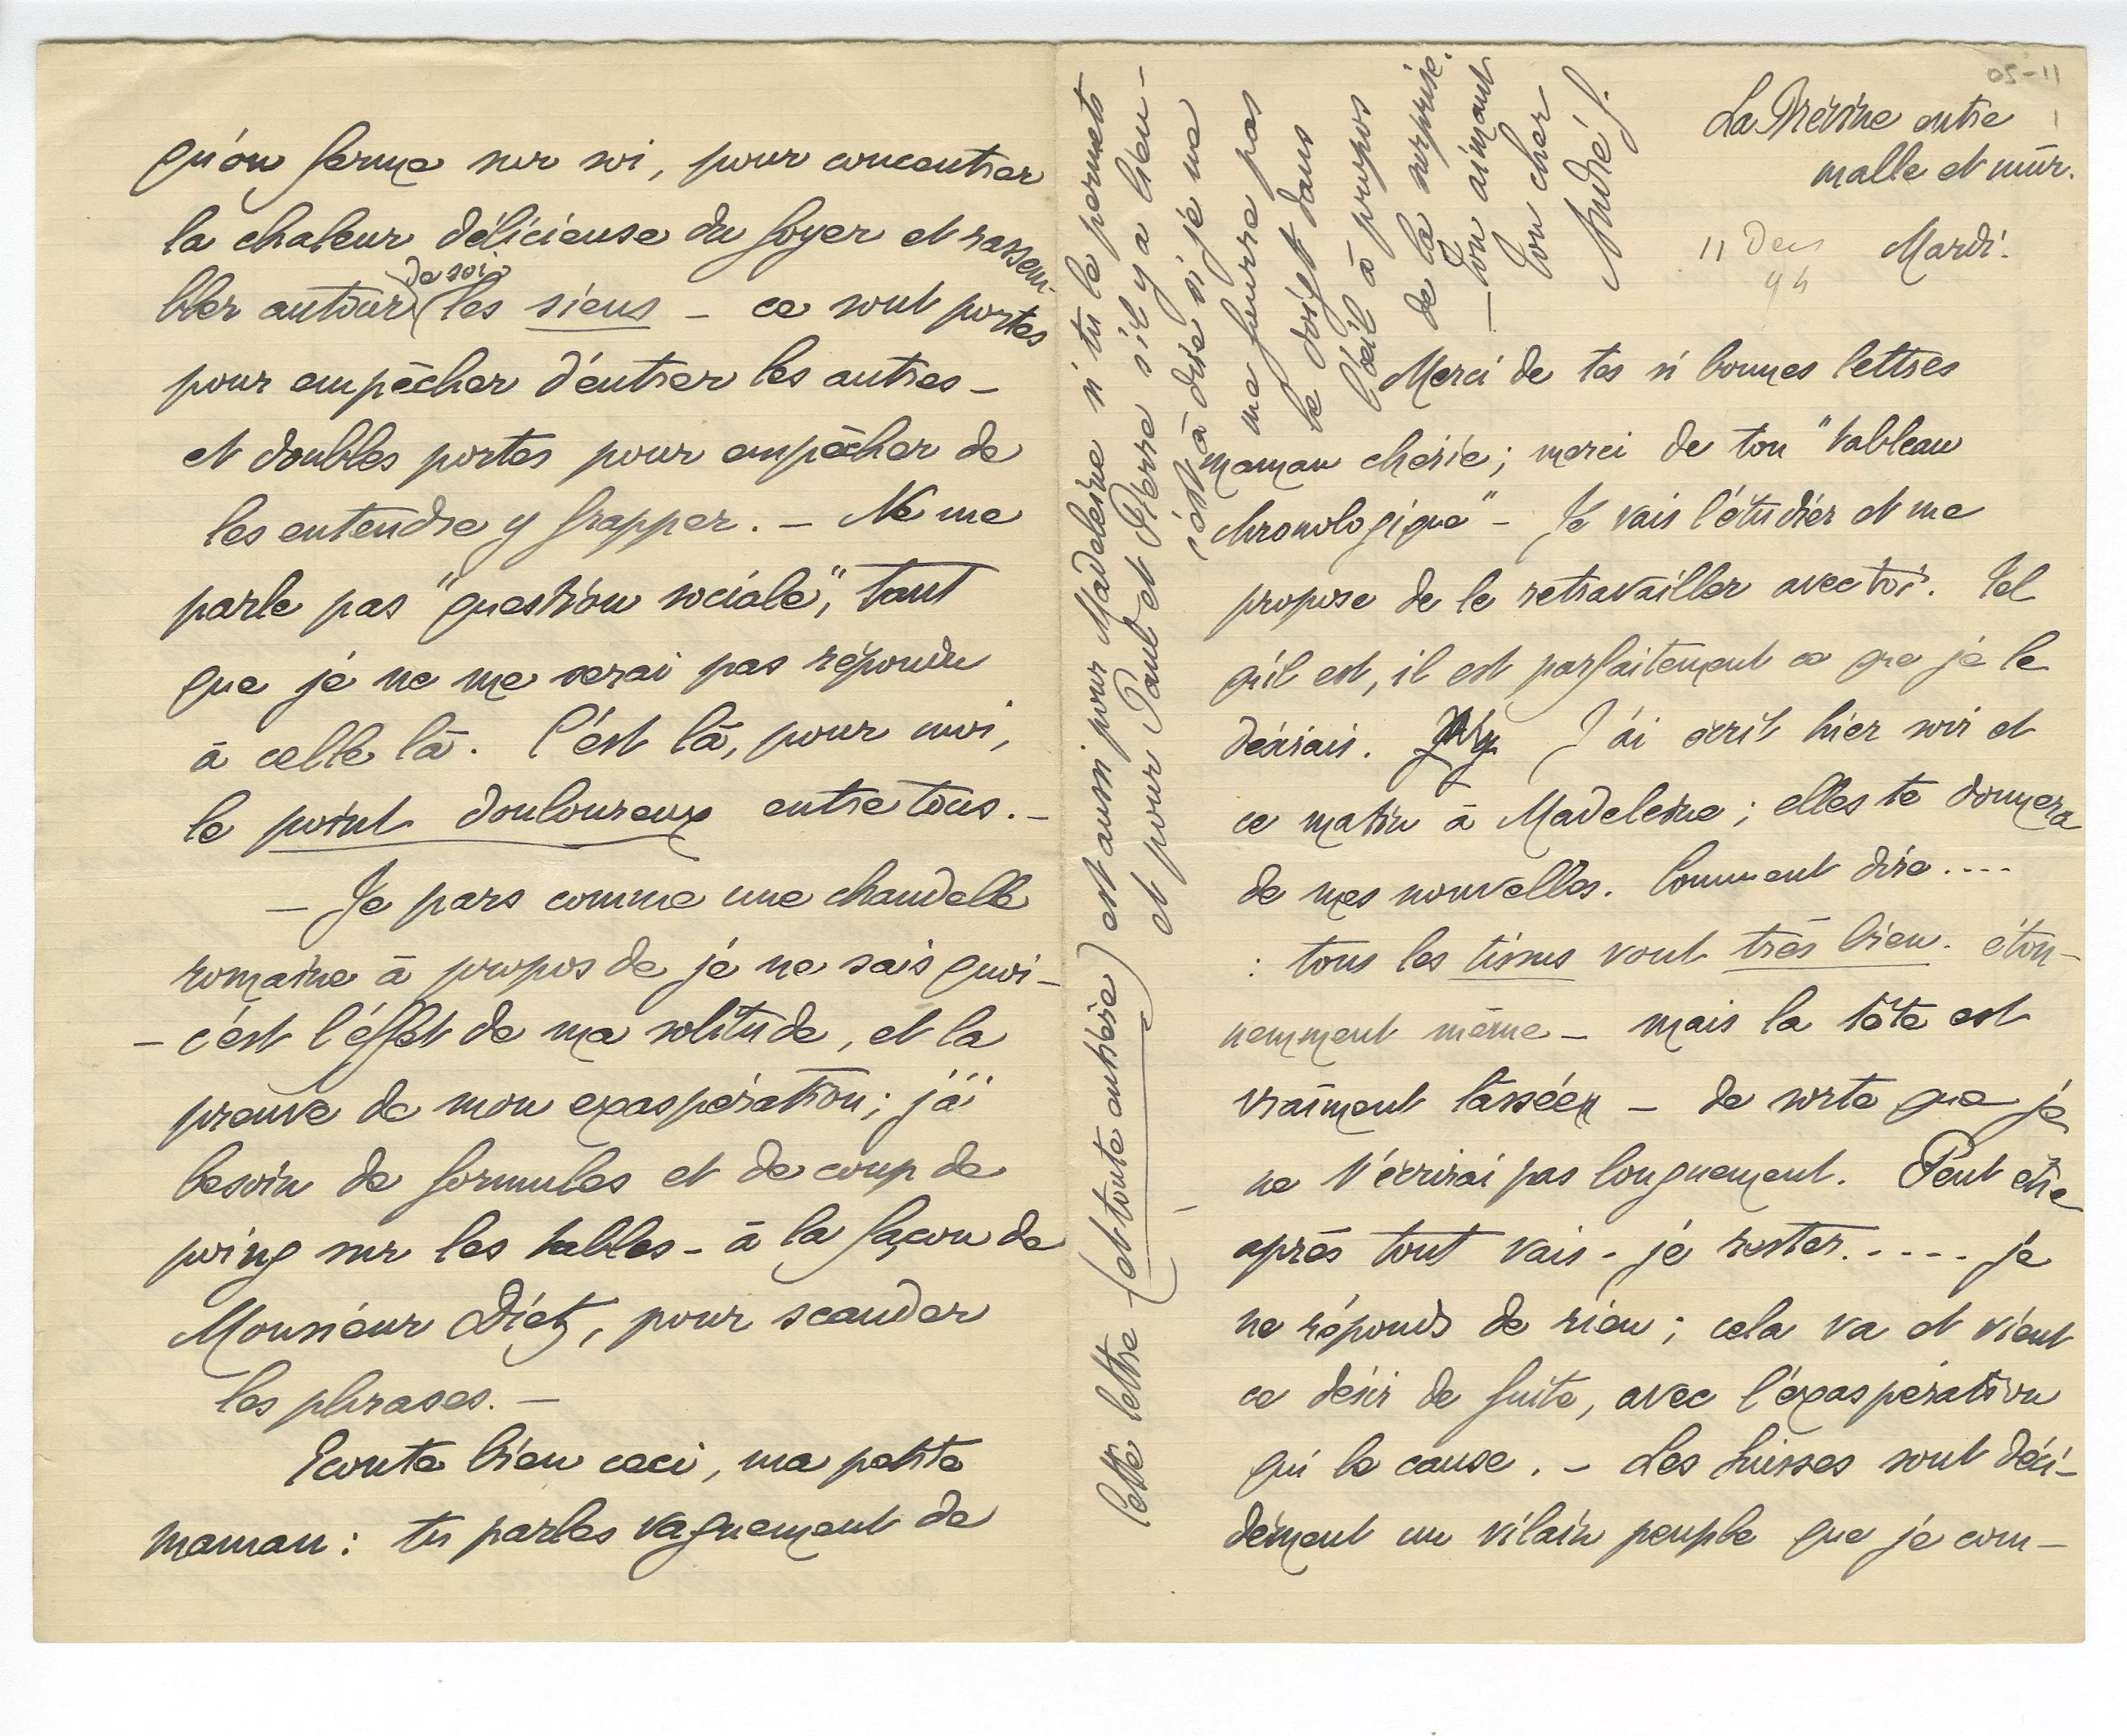 La Brévine entre
malle et mur.
11 Dec
94
Mardi.
Merci de tes si bonnes lettres
maman chérie ; merci de ton "tableau
chronologique" – Je vais l'étudier et me
propose de le retravailler avec toi. Tel
qu'il est, il est parfaitement ce que je le
désirais. J'ai écrit hier soir et
ce matin à Madeleine ; elles te donnera
de mes nouvelles. Comment dire ....
: tous les tissus vont très bien. éton–
nemment même – mais la tête est
vraiment lassée – de sorte que je
ne t'écrirai pas longuement. Peut être
après tout vais-je rester. . . . . . je
ne réponds de rien ; cela va et vient
ce désir de fuite, avec l'exaspération
qui le cause. – Les Suisses sont déci–
dément un vilain peuple que je com–
qu'on ferme sur soi, pour concentrer
la chaleur délicieuse du foyer et rassem-
bler autour (de soi) les siens – ce sont portes
pour empêcher d'entrer les autres –
et doubles portes pour empêcher de
les entendre y frapper. – Ne me
parle pas "question sociale", tant
que je ne me serai pas répondu
à celle là. C'est là, pour moi,
le point douloureux entre tous. –
– Je pars comme une chandelle
romaine à propos de je ne sais quoi –
– c'est l'effet de ma solitude, et la
preuve de mon exaspération ; j'ai
besoin de formules et de coup de
poing sur les tables – à la façon de
Monsieur Dietz, pour scander
les phrases. –
Ecoute bien ceci, ma petite
maman : tu parles vaguement de
Cette lettre (et toute entière) est aussi pour Madeleine si tu le permets
et pour Paul et Pierre s'il y a lieu –
c'est à dire si je ne
me fourre pas
le doigt dans
l'œil à propos
de la surprise.
– Ton aimant
Ton cher
André G.
11-50